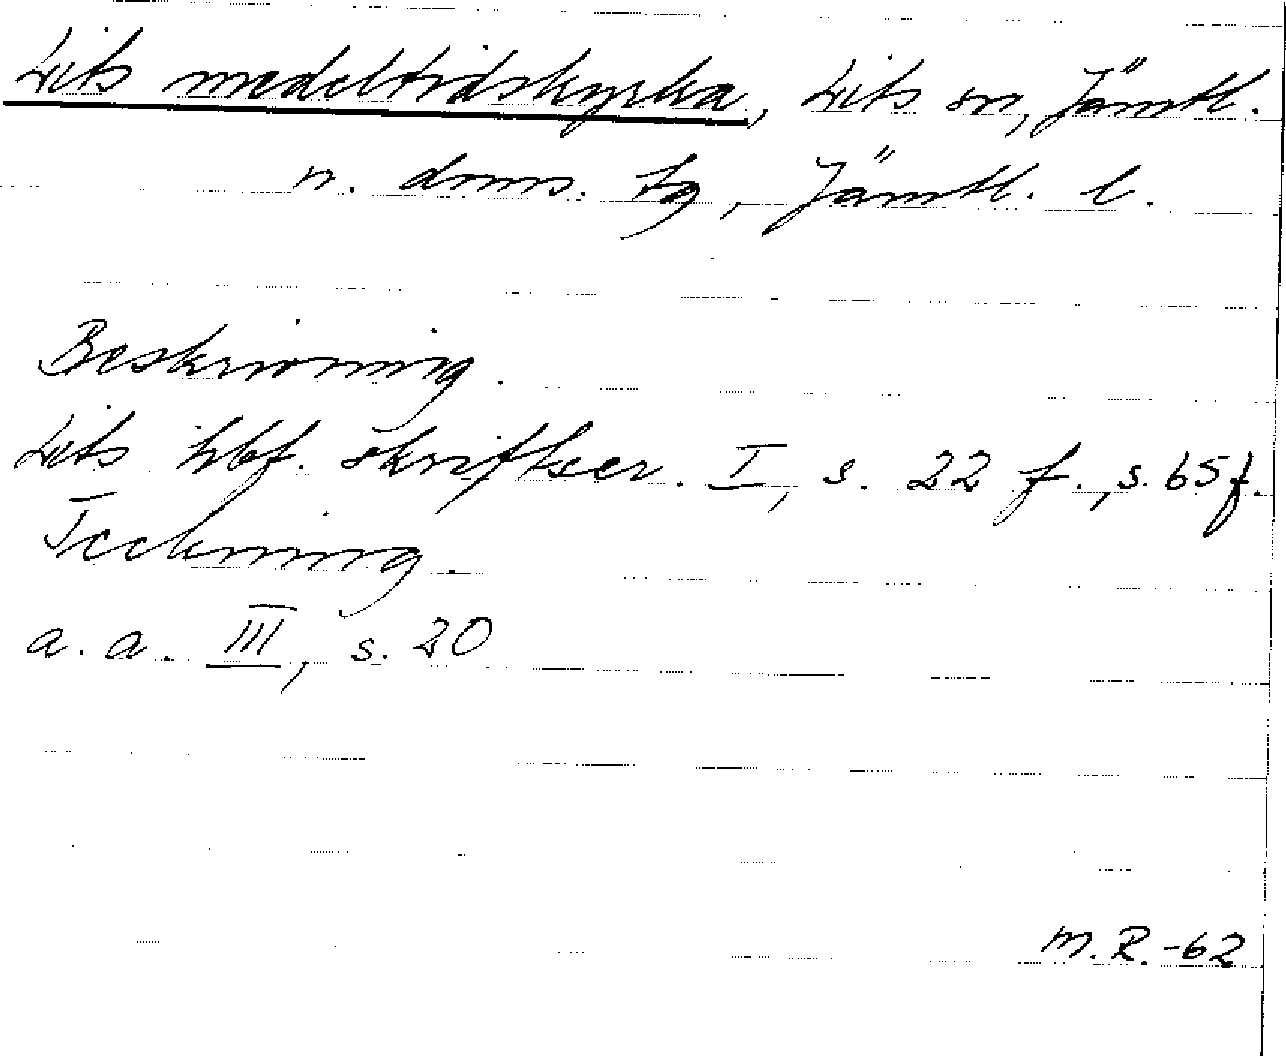 Lits medeltidskyrka, Lits sn, Jämtl.
n. doms. tg, Jämtl. l.
Beskrivning.
Lits hbf. skriftser. I, s. 22 f., s. 65 f.
Teckning.
a. a. III, s. 20
M.R.-62